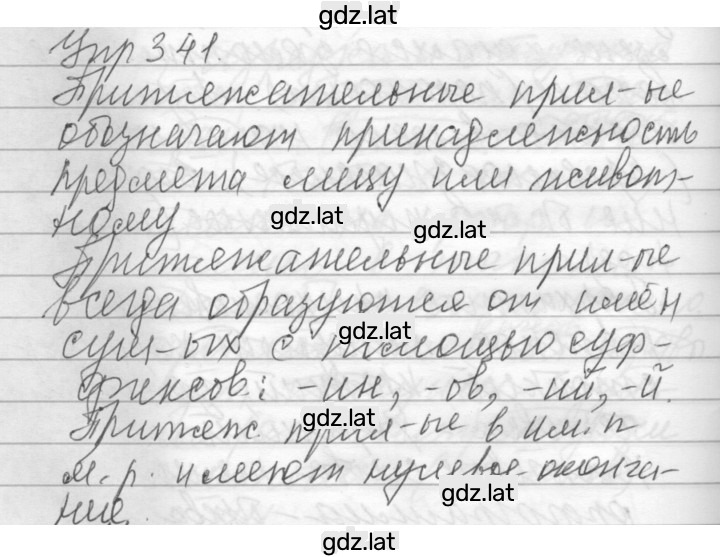 gdz.lat
Упр 341.
Притяжательные прил-ые
обозначают принадлежность
предмета лицу или живот-
ному
gdz.lat
gdz.lat
Притяжательные прил-ые
всегда образуются от имён
gdz.lat
сущ-ых с помощью суф-
фиксов: -ин, -ов, -ий, -й.
gdz.lat
Притяж прил-ые в им. п
м. р. имеют нулевое оконча-
gdz.lat
ние.
gdz.lat